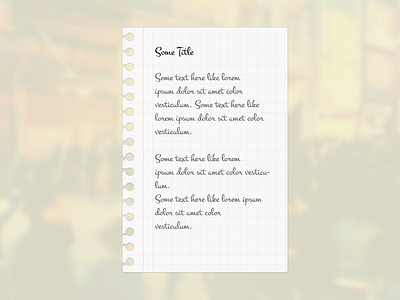 Some Title
Some text here like lorem
ipsum dolor sit amet color
vesticulum. Some text here like
lorem ipsum dolor sit amet color
vesticulum.
Some text here like lorem
ipsum dolor sit amet color vesticu-
lum.
Some text here like lorem ipsum
dolor sit amet color
vesticulum.